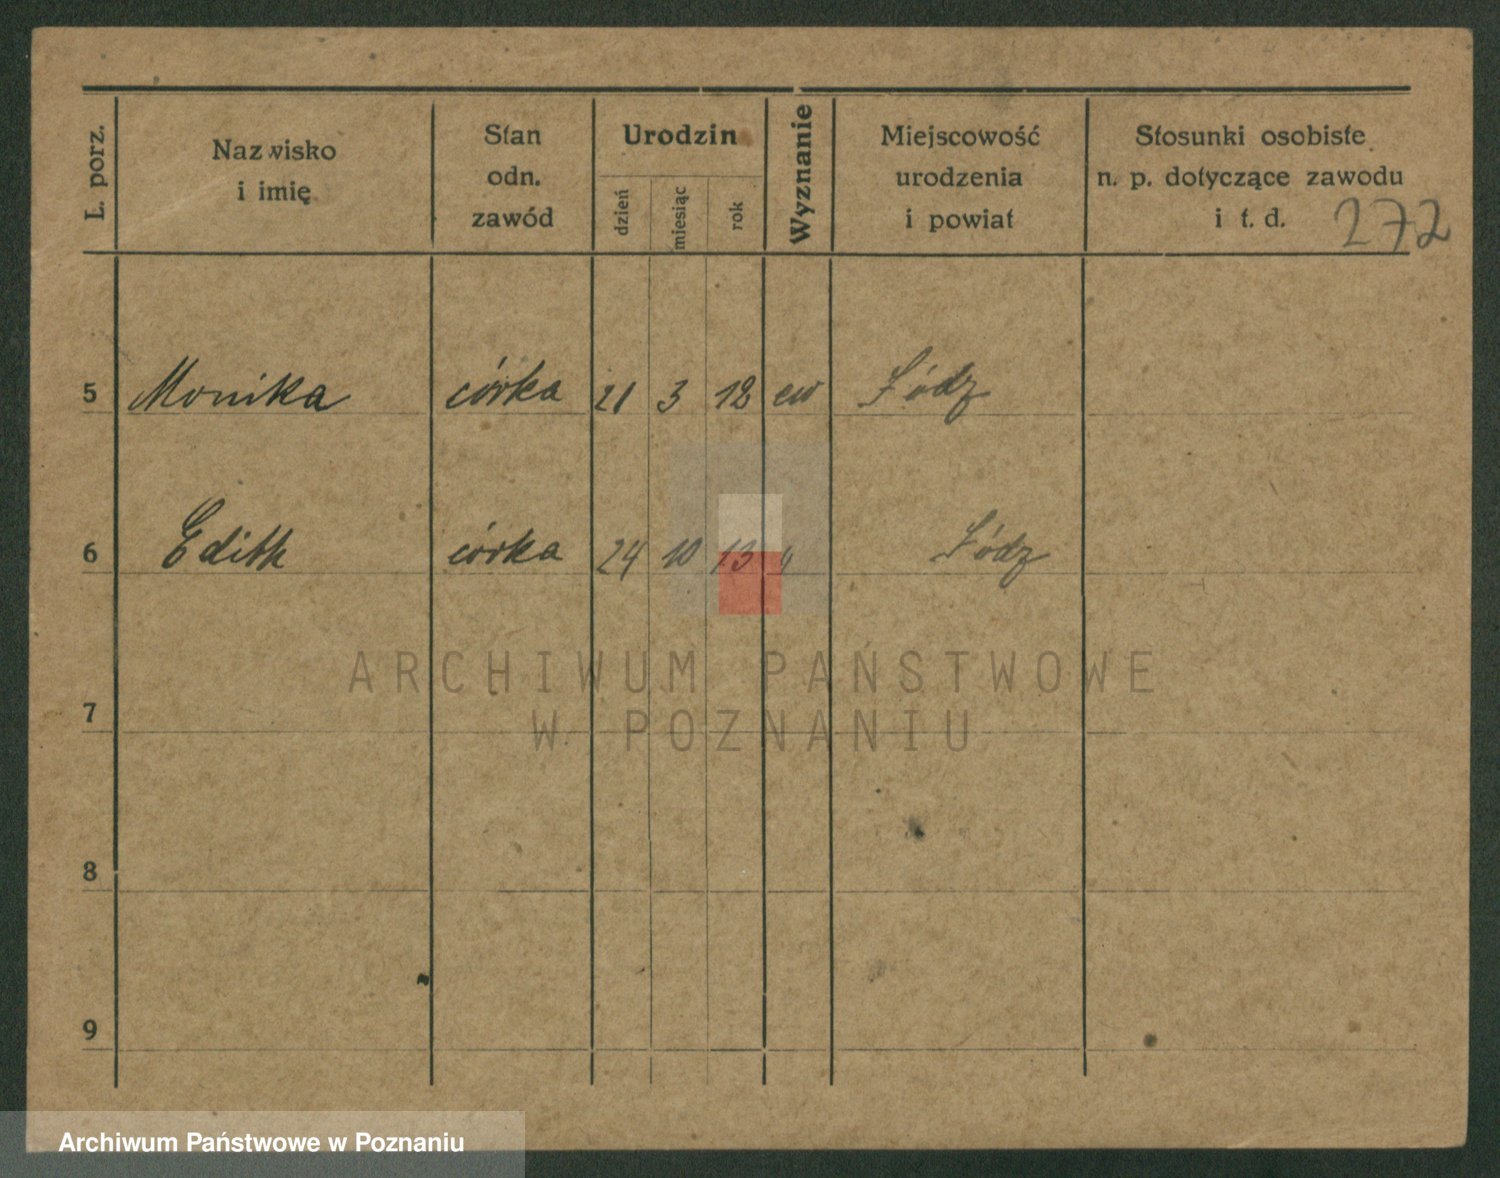 L. porz.
Nazwisko i imię
Stan odn. zawód
Urodzin
dzień miesiąc rok
Wyznanie
Miejscowość urodzenia i powiat
Stosunki osobiste n. p. dotyczące zawodu i t. d.
272
5 Monika córka 21 3 12 ew Łódz
6 Edith córka 24 10 13 " Łódz
7
8
9
ARCHIWUM PAŃSTWOWE
W POZNANIU
Archiwum Państwowe w Poznaniu